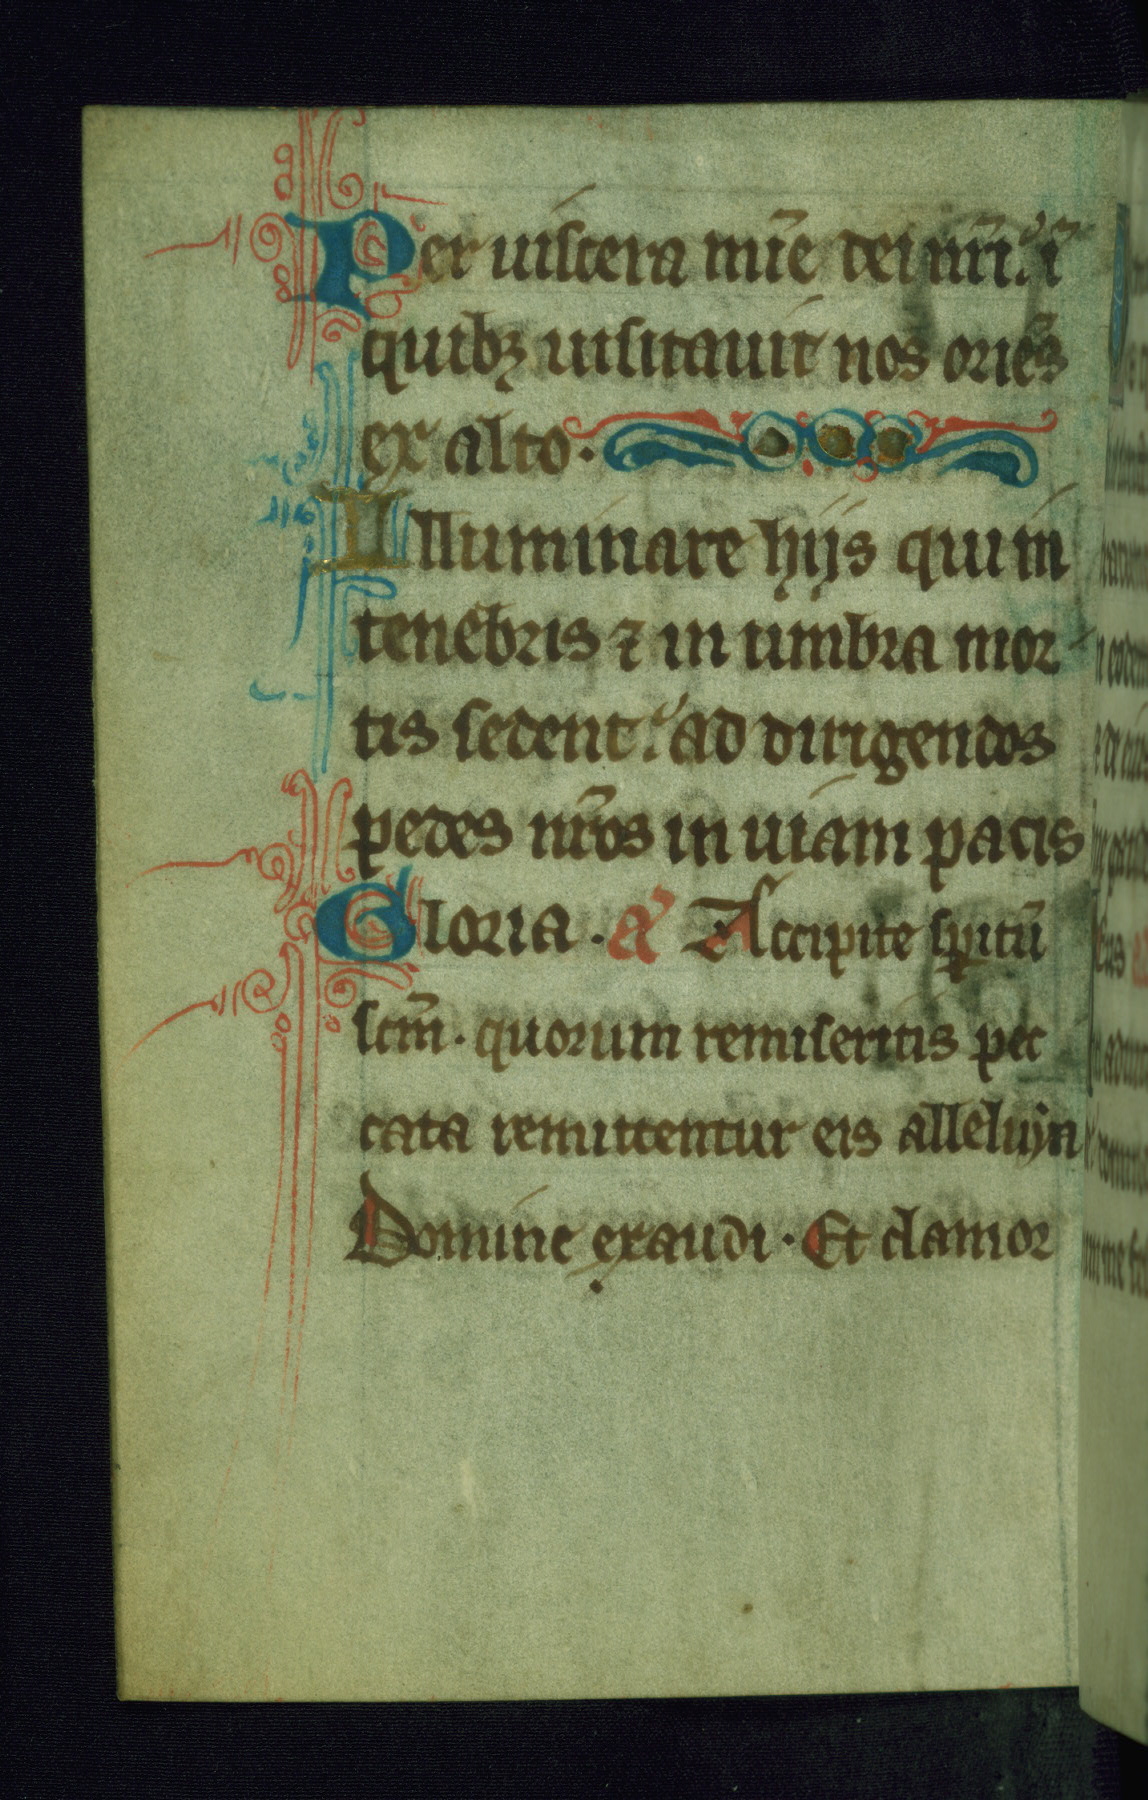 Per uiscera mīe dei nr̄i. ī
quibꝫ uisitauit nos oriēs
ex alto.
Illuminare hijs qui in
tenebris ⁊ in umbra mor
tis sedent: ad dirigendos
pedes nr̄os in uiam pacis
Gloria. a' Accipite spiritū
scm̄. quorum remiseritis pec
cata remittentur eis alleluya
Domine exaudi. Et clamor